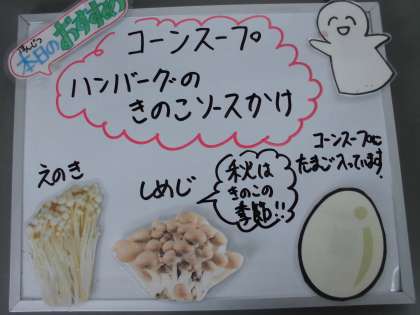 ほんじつ
本日の
おすすめ
コーンスープ
ハンバーグの
きのこソースかけ
えのき
しめじ
秋は
きのこの
季節!!
コーンスープに
たまご入っています。